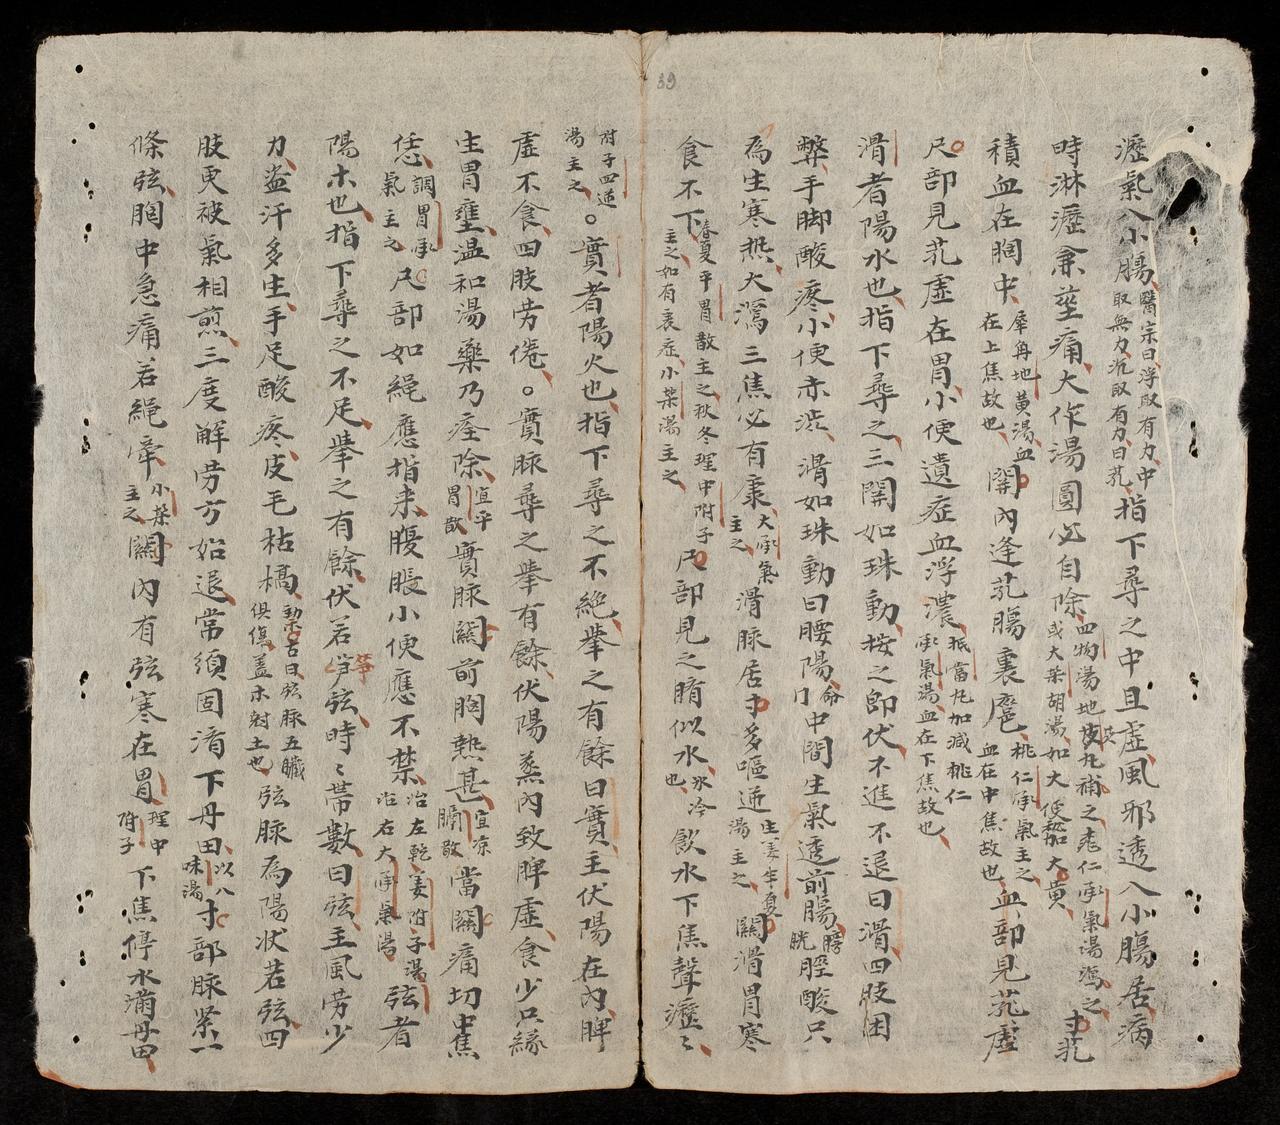 39
瀝氣入小膓醫宗曰浮取有力中取無力沉取有力曰芤指下尋之中且虛風邪透入小膓居病
時淋瀝兼莖痛大作湯圓必自除四物湯地黃丸補之桃仁承氣湯瀉之或大柴胡湯如大便秘加大黃寸芤
積血在胸中犀角地黃湯血在上焦故也關內逢芤膓裏癰桃仁承氣主之血在中焦故也血部見芤虛
尺部見芤虛在胃小便遺症血浮濃抵當丸加減桃仁承氣湯血在下焦故也
滑者陽水也指下尋之三關如珠動按之即伏不進不退曰滑四肢困
弊手脚酸疼小便赤澁滑如珠動曰腰陽命門中間生氣透前膓膀胱脛酸只
為生寒熱大瀉三焦必有康大承氣主之滑脉居寸多嘔逆生姜半夏湯主之關滑胃寒
食不下春夏平胃散主之秋冬理中附子主之如有表症小柴湯主之尺部見之臍似水氷冷也飲水下焦聲瀝〻
附子四逆湯主之。實者陽火也指下尋之不絶舉之有餘曰實主伏陽在內脾
虛不食四肢劳倦。實脉尋之舉有餘伏陽蒸內致脾虛食少只緣
生胃壅温和湯藥乃痊除宜平胃散實脉關前胸熱甚宜凉膈散當關痛切中焦
恁調胃承氣主之尺部如繩應指来腹脹小便應不禁治左乾姜附子湯治右大承氣湯弦者
陽木也指下尋之不足舉之有餘伏若箏弦時〻帶數曰弦主風劳少
力盗汗多生手足酸疼皮毛枯槁㓗古曰弦脉五臟俱傷盖木尅土也弦脉為陽状若弦四
肢更被氣相煎三度解劳方始退常須固濟下丹田以八味湯寸部脉紧一
條弦胸中急痛若繩牽小柴主之關內有弦寒在胃理中附子下焦停水滿丹田